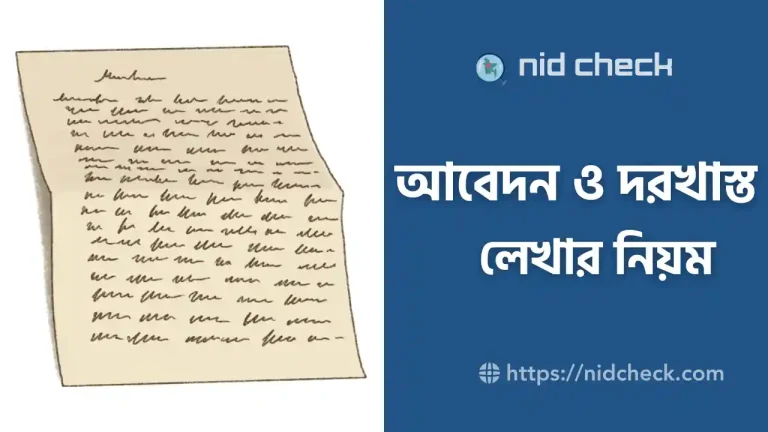 nid check
আবেদন ও দরখাস্ত
লেখার নিয়ম
https://nidcheck.com